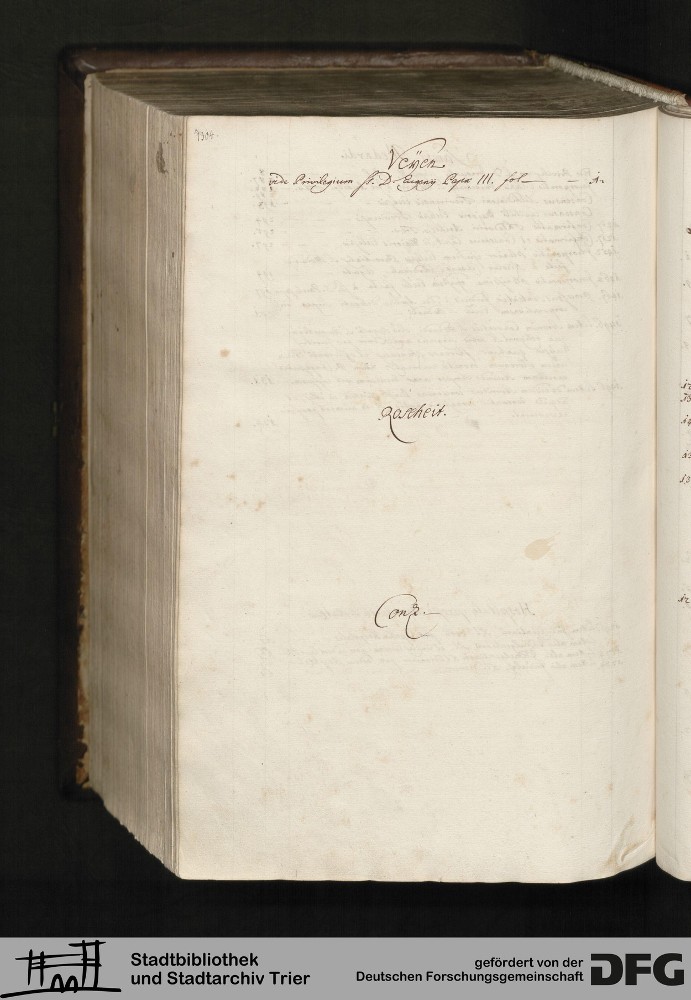 1304
Veÿen
vide Privilegium s. D. Eugenÿ Papæ III. fol — — 1.
Rascheit.
Conz.
Stadtbibliothek
und Stadtarchiv Trier
gefördert von der
Deutschen Forschungsgemeinschaft
DFG